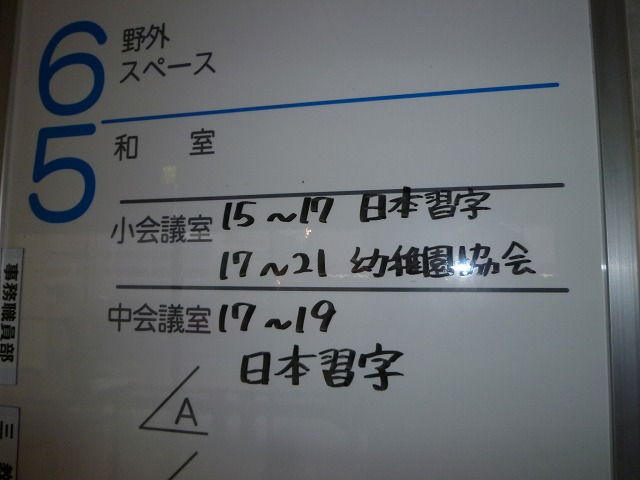 6 野外
スペース
5 和室
小会議室 15~17 日本習字
17~21 幼稚園協会
中会議室 17~19
日本習字
A
事務職員部
三